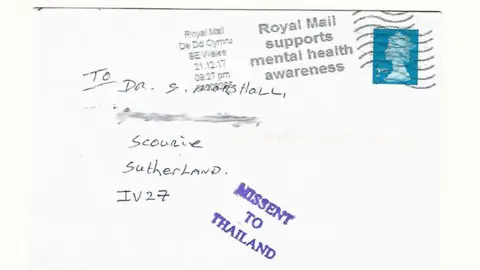 Royal Mail
De Do Cymru
SE Wales
21.12.17
09:27 pm
Royal Mail
supports
mental health
awareness
2nd
TO DR. S. MARSHALL,
SCOURIE
SUTHERLAND.
IV27
MISSENT
TO
THAILAND